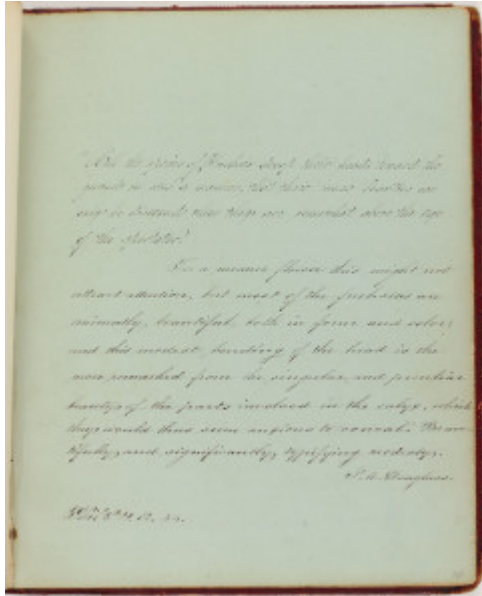 "All the species of Fuchsia droop their heads toward the
ground in such a manner, that their inner beauties can
only be discerned when they are somewhat above the eye
of the spectator."
In a meaner flower this might not
attract attention, but most of the fuchsias are
eminently beautiful, both in form and color;
and this modest bending of the head is the
more remarked from the singular and peculiar
beauty of the parts involved in the calyx, which
they would thus seem anxious to conceal. Beau-
tifully, and significantly, typifying modesty.
S. M. Douglass.